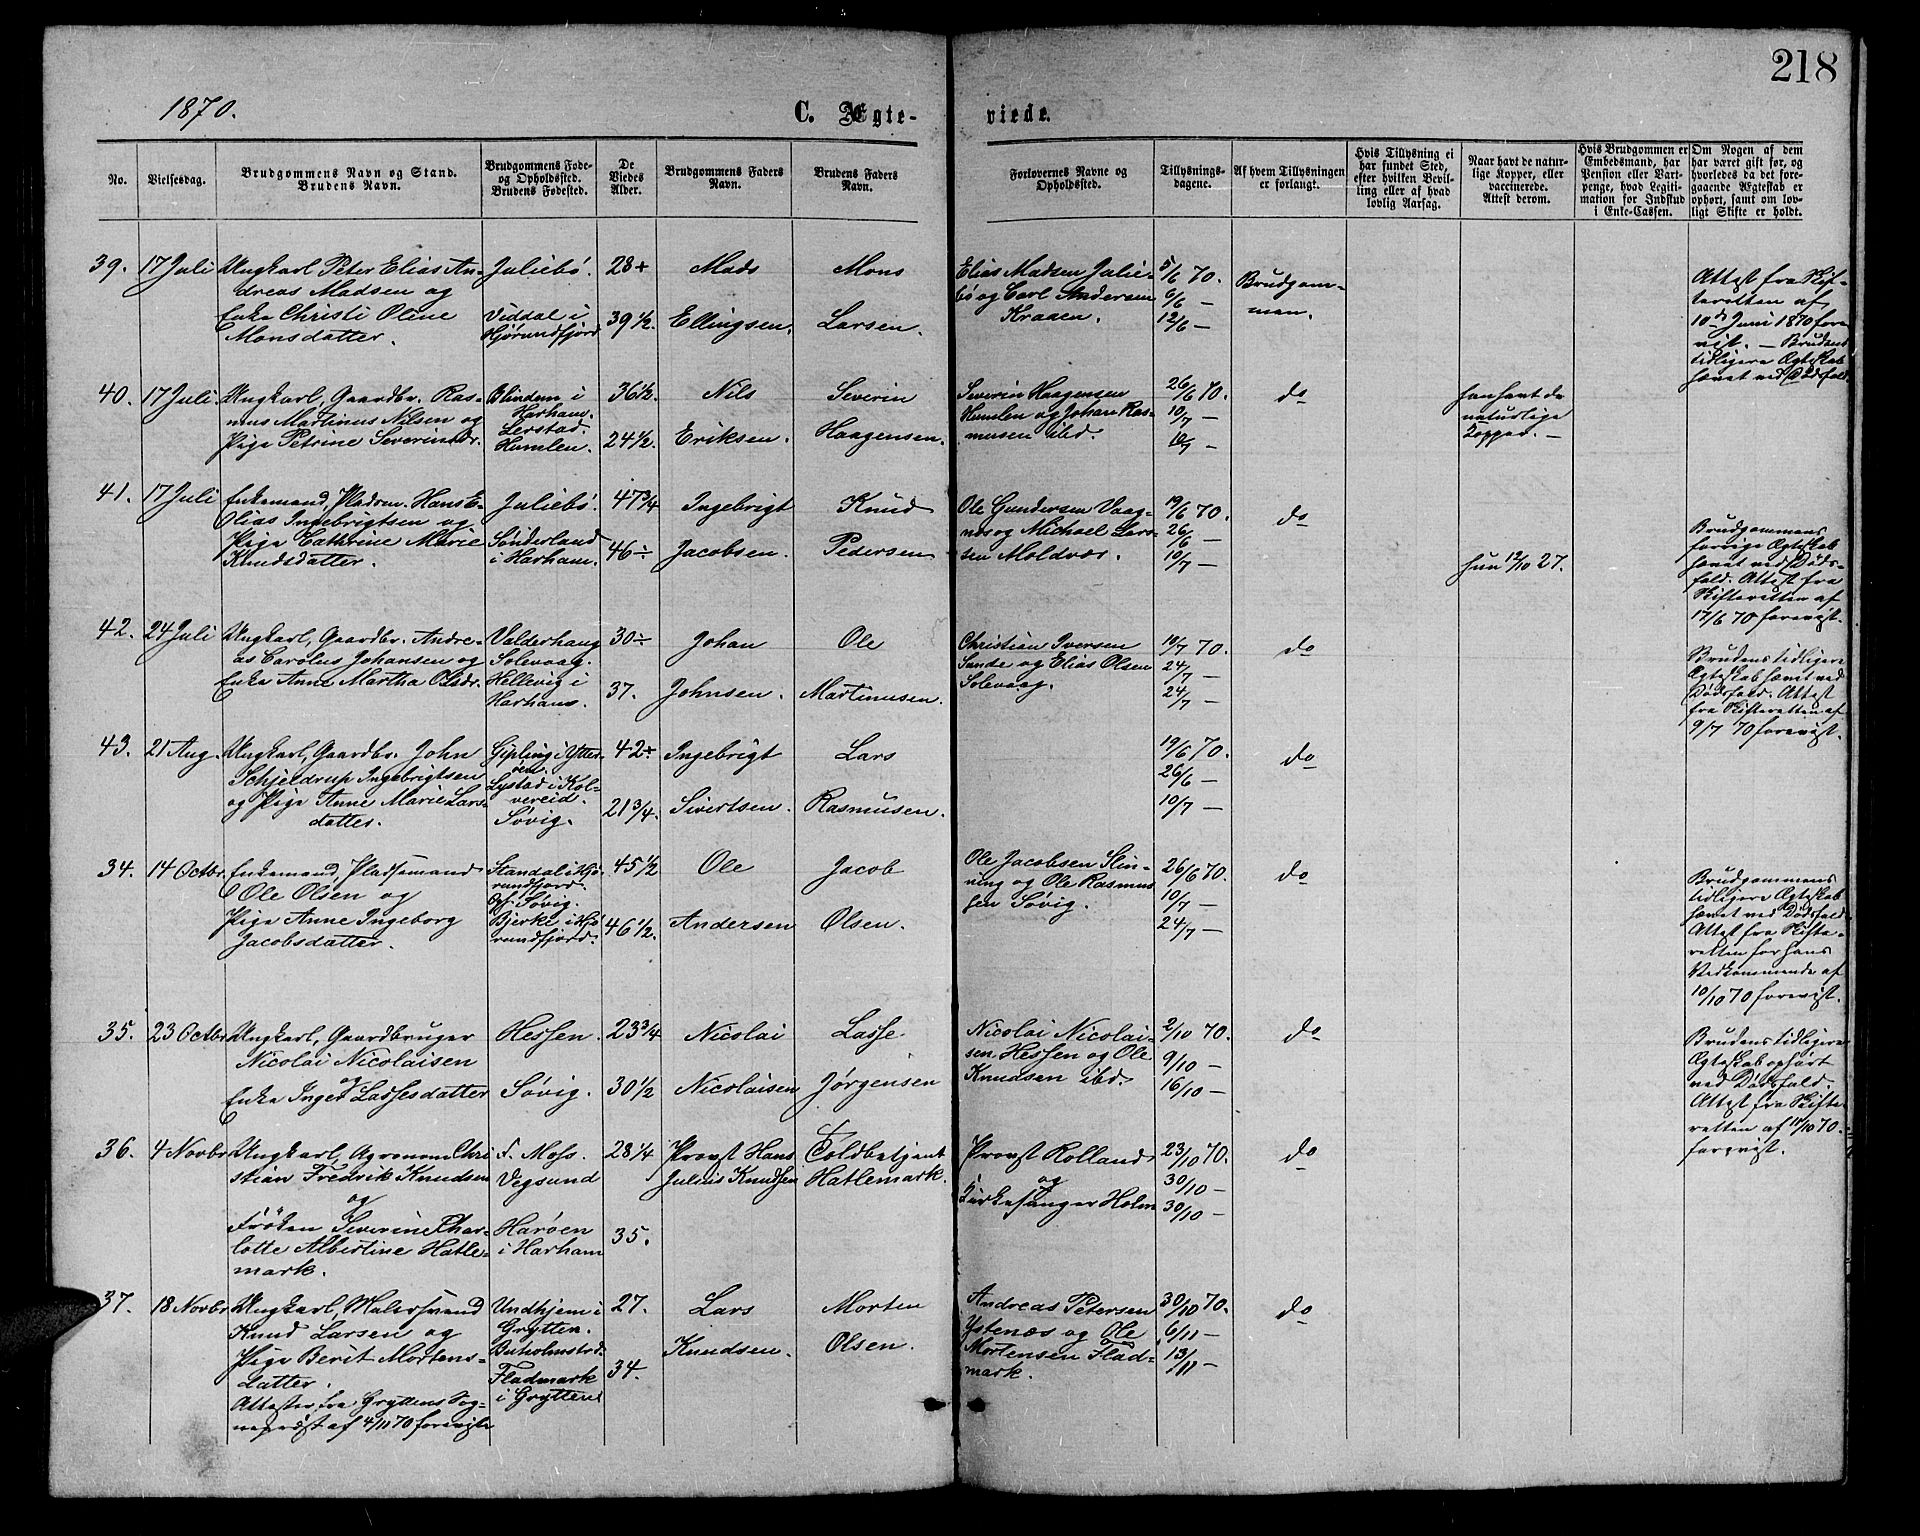 218
1870.
C. Ægte-
viede.
No.
Vielsesdag.
Brudgommens Navn og Stand.
Brudens Navn.
Brudgommens Føde-
og Opholdssted.
Brudens Fødested.
De
Viedes
Alder.
Brudgommens Faders
Navn.
Brudens Faders
Navn.
Forlovernes Navne og
Opholdssted.
Tillysnings-
dagene.
Af hvem Tillysningen
er forlangt.
Hvis Tillysning ei
har fundet Sted,
efter hvilken Bevil-
ling eller af hvad
lovlig Aarsag.
Naar havt de natur-
lige Kopper, eller
vaccinerede.
Attest derom.
Hvis Brudgommen er
Embedsmand, har
Pension eller Vart-
penge, hvad Legiti-
mation for Indskud
i Enke-Cassen.
Om Nogen af dem
har været gift før, og
hvorledes da det fore-
gaaende Ægteskab er
ophørt, samt om lov-
ligt Skifte er holdt.
39. 17 Juli
Ungkarl Peter Elias An-
dreas Madsen og
Enke Christi Oline
Monsdatter.
Juliebø.
Viddal i
Hjørundfjord
28 ÷
39 1/2.
Mads
Ellingsen.
Mons
Larsen.
Elias Madsen Julie-
bø og Carl Andersen
Kraaen.
5/6 70.
6/6 —
12/6 —
Brudgom-
men.
Attest fra Skif-
teretten af
10de Juni 1870 fore
vist. — Brudens
tidligere Ægteskab
hævet ved Dødsfald.
40. 17 Juli.
Ungkarl, Gaardbr. Ras-
mus Martinus Nilsen og
Pige Petrine Severinsdr.
Blindem i
Harham.
Lerstad.
Humlen.
36 1/2.
24 1/2.
Nils
Eriksen.
Severin
Haagensen.
Severin Haagensen
Humlen og Johan Ras-
musen ibd.
26/6 70.
10/7 —
10/7 —
do
han havt de
naturlige
Kopper. —
41. 17 Juli
Enkemand, Pladsm. Hans E-
lias Ingebrigtsen og
Pige Cathrine Marie
Knudsdatter.
Juliebø.
Sønderland
i Harham.
47 3/4
46 ÷
Ingebrigt
Jacobsen.
Knud
Pedersen
Ole Gundersen Vaag-
næs og Michael Lars-
sen Moldvær.
19/6 70.
26/6 —
10/7 —
do
hun 12/10 27.
Brudgommens
forrige Ægteskab
hævet ved Døds-
fald. Attest fra
Skifteretten af
17/6 70 forevist.
42. 24 Juli
Ungkarl, Gaardbr. Andre-
as Carolus Johansen og
Enke Anne Martha Olsdr.
Valderhaug
Solevaag.
Hellevig i
Harham.
30 ÷
37.
Johan
Johnsen.
Ole
Martinusen.
Christian Iversen
Sunde og Elias Olsen
Solevaag.
10/7 70.
24/7 —
24/7 —
do
Brudens tidligere
Ægteskab hævet ved
Dødsfald. Attest
fra Skifteretten af
9/7 70 forevist.
43. 21 Aug.
Ungkarl, Gaardbr. John
Schjeldrup Ingebrigtsen
og Pige Anne Marie Lars-
datter.
Gipling i Ytter-
øen.
Lystad i Kol-
vereid.
Søvig.
42 ÷
21 3/4.
Ingebrigt
Sivertsen.
Lars
Rasmusen.
19/6 70.
26/6 —
10/7 —
do
34. 14 Octbr.
Enkemand, Pladsemand
Ole Olsen og
Pige Anne Ingeborg
Jacobsdatter.
Standal i Hjø-
rundfjord.
Søvig.
Bjerke i Hjø-
rundfjord.
45 1/2
46 1/2.
Ole
Andersen
Jacob
Olsen.
Ole Jacobsen Slin-
ning og Ole Rasmus-
sen Søvig.
26/6 70.
10/7 —
24/7 —
do
Brudgommens
tidligere Ægteskab
hævet ved Dødsfald.
Attest fra Skifte-
retten for hans
Vedkommende af
10/10 70 forevist.
35. 23 Octbr
Ungkarl, Gaardbruger
Nicolai Nicolaisen
og
Enke Inger Lassesdatter
Hessen.
Søvig.
23 3/4
30 1/2
Nicolai
Nicolaisen
Lasse
Jørgensen
Nicolai Nicolai-
sen Hessen og Ole
Knudsen ibd.
2/10 70.
9/10 —
16/10 —
do
Brudens tidligere
Ægteskab ophørt
ved Dødsfald.
Attest fra Skifte-
retten af 11/10 70.
forevist.
36. 4 Novbr
Ungkarl, Agronom Chri
stian Fredrik Knudsen
og
Frøken Severine Char-
lotte Albertine Hatle-
mark.
f. Moss.
Vegsund
Harøen
i Harham
28 1/4
35.
Provst Hans
Julius Knudsen
Toldbetjent
Hatlemark.
Provst Rolland
og
Kirkesanger Holm
23/10 70.
30/10 —
30/10 —
do
37. 18 Novbr
Ungkarl, Malersvend
Knud Larsen og
Pige Berit Mortens-
datter.
Attester fra Gryttens Sog-
neprest af 4/11 70 foreviste
Undhjem i
Grytten.
Buholmstrd.
Fladmark
i Grytten
27.
34.
Lars
Knudsen.
Morten
Olsen.
Andreas Petersen
Ystenæs og Ole
Mortensen Flad-
mark.
30/10 70.
6/11 —
13/11 —
do